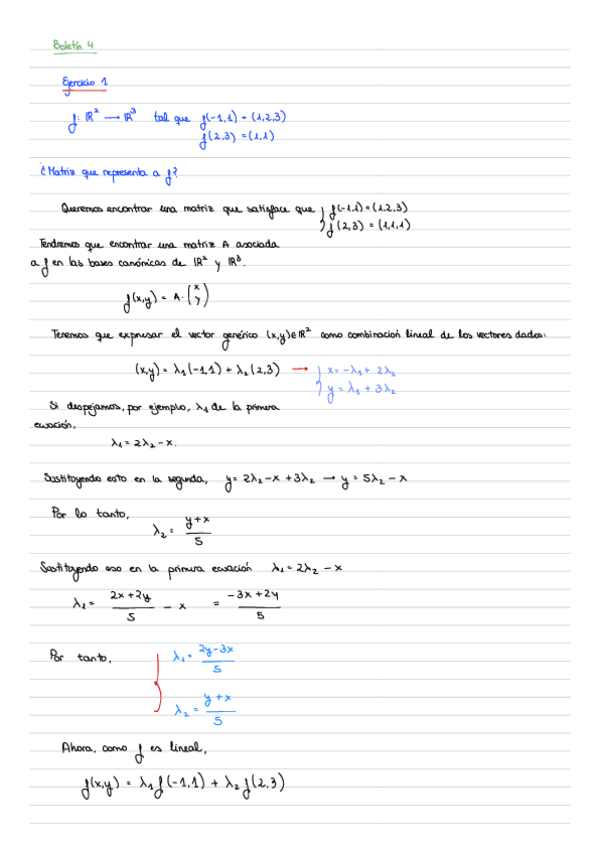 Boletín 4
Ejercicio 1
f: ℝ² → ℝ³ tal que f(-1,1) = (1,2,3)
f(2,3) = (1,1)
¿Matriz que representa a f?
Queremos encontrar una matriz que satisface que f(-1,1) = (1,2,3)
f(2,3) = (1,1,1)
Tendremos que encontrar una matriz A asociada
a f en las bases canónicas de ℝ² y ℝ³.
f(x,y) = A·(x y)
Tenemos que expresar el vector genérico (x,y)∈ℝ² como combinación lineal de los vectores dados:
(x,y) = λ₁(-1,1) + λ₂(2,3) → x = -λ₁ + 2λ₂
y = λ₁ + 3λ₂
Si despejamos, por ejemplo, λ₁ de la primera
ecuación,
λ₁ = 2λ₂ - x.
Sustituyendo esto en la segunda, y = 2λ₂ - x + 3λ₂ → y = 5λ₂ - x
Por lo tanto,
λ₂ = (y+x)/5
Sustituyendo eso en la primera ecuación λ₁ = 2λ₂ - x
λ₁ = (2x+2y)/5 - x = (-3x+2y)/5
Por tanto, λ₁ = (2y-3x)/5
λ₂ = (y+x)/5
Ahora, como f es lineal,
f(x,y) = λ₁f(-1,1) + λ₂f(2,3)